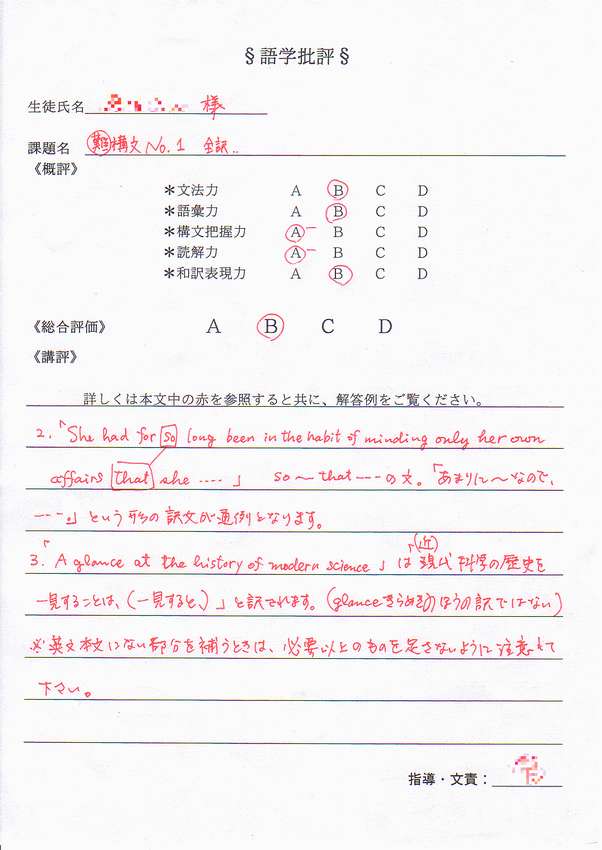 §語学批評§
生徒氏名 様
課題名 難構文No.1 全訳..
《概評》
*文法力 A B C D
*語彙力 A B C D
*構文把握力 A- B C D
*読解力 A- B C D
*和訳表現力 A B C D
《総合評価》 A B C D
《講評》
詳しくは本文中の赤を参照すると共に、解答例をご覧ください。
2.「She had for so long been in the habit of minding only her own
affairs that she ....」 so〜that---の文。「あまりに〜なので、
---。」という形の訳文が通例となります。
3.「A glance at the history of modern science」は「現(近)代科学の歴史を
一見することは、(一見すると、)」と訳されます。(glance きらめきのほうの訳ではない)
※英文本文にない部分を補うときは、必要以上のものを足さないように注意して
下さい。
指導・文責: